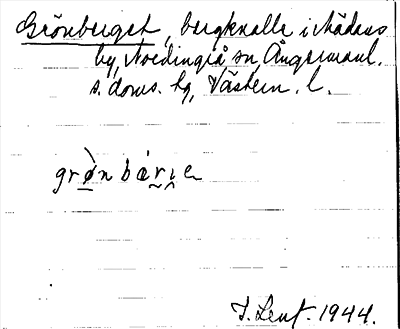 Grönberget, bergknalle i Nådans
by, Nordingrå sn, Ångermanl.
s. doms. tg, Västern. l.
grø̀n bærɪe
1944.